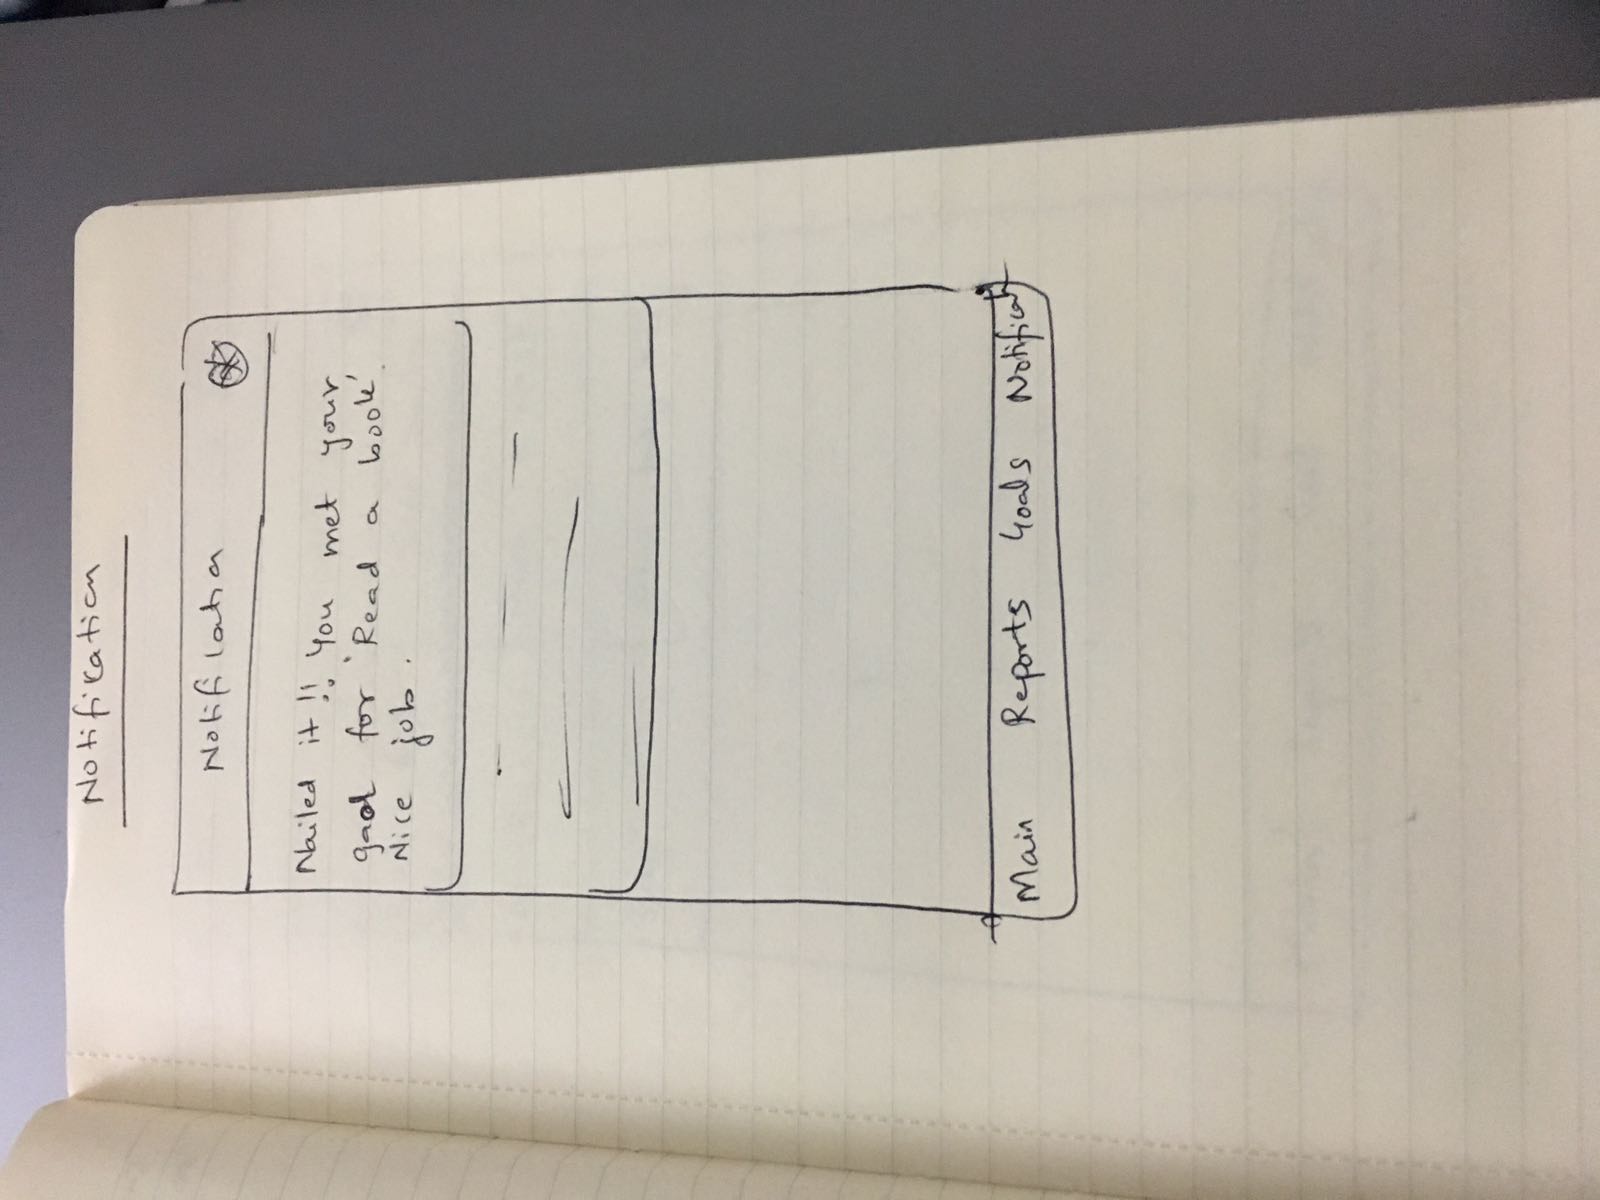 Notification
Notification
Nailed it !! You met your
goal for 'Read a book'.
Nice job.
Main Reports Goals Notificat